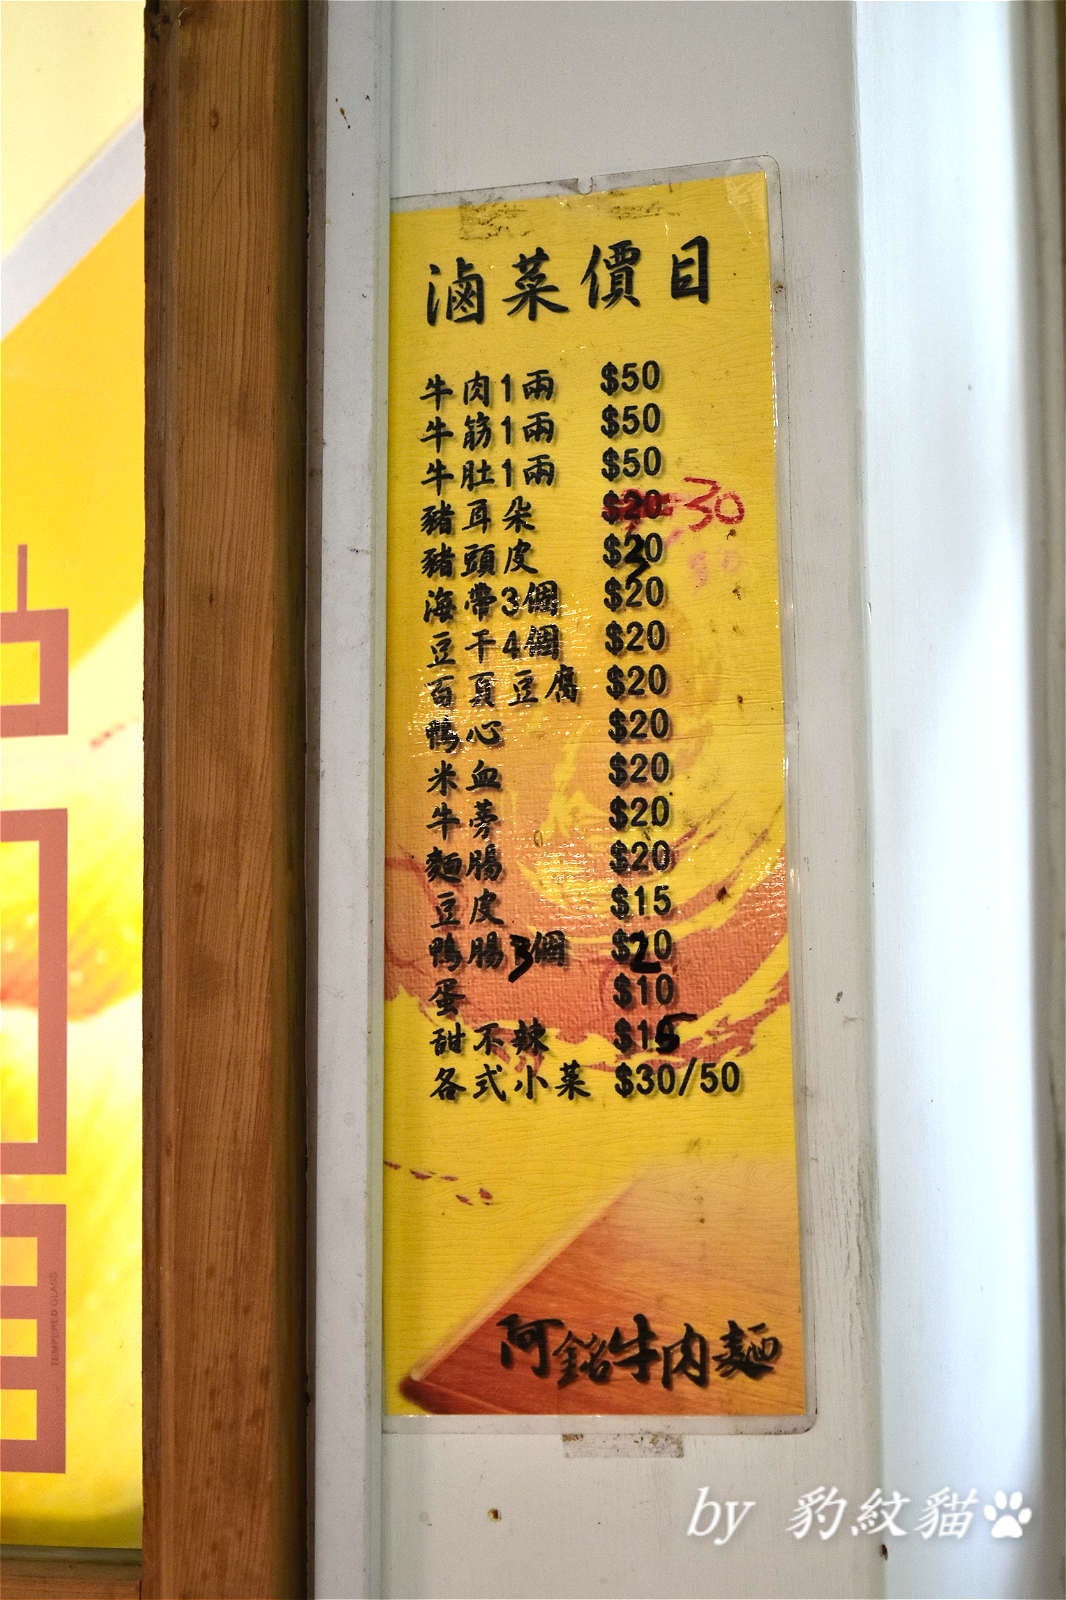 滷菜價目
牛肉1兩 $50
牛筋1兩 $50
牛肚1兩 $50
豬耳朵 $20 30
豬頭皮 $20
海帶3個 $20
豆干4個 $20
百頁豆腐 $20
鴨心 $20
米血 $20
牛蒡 $20
麵腸 $20
豆皮 $15
鴨腸3個 $20
蛋 $10
甜不辣 $15
各式小菜 $30/50
阿銘牛肉麵
TEMPERED GLASS
by 豹紋貓